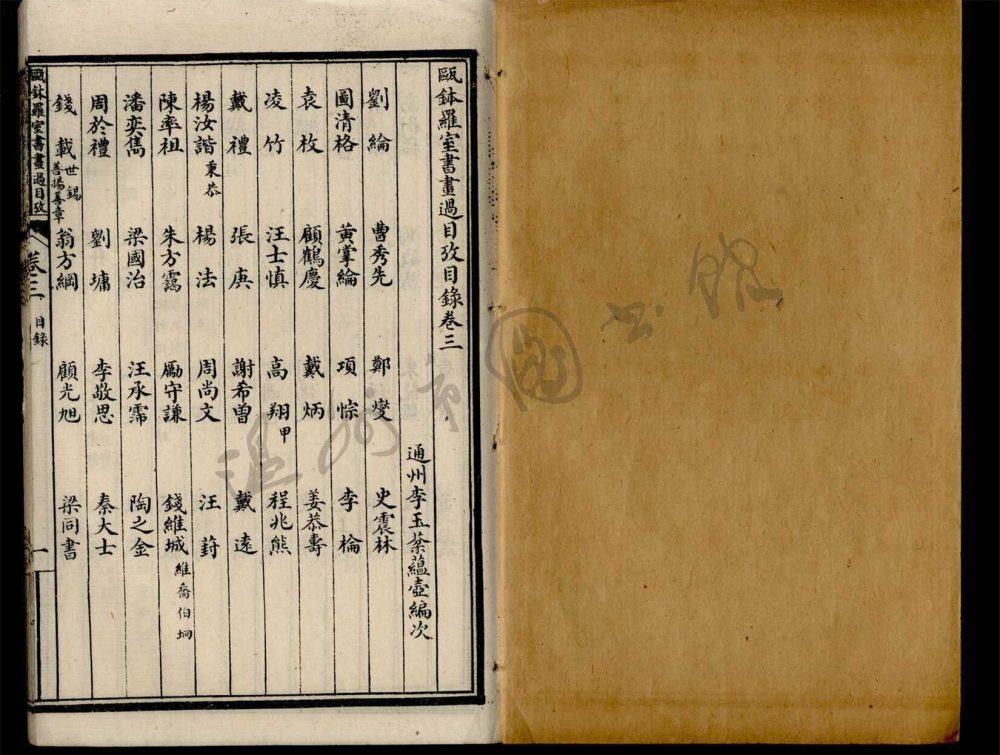 甌鉢羅室書畫過目攷目錄卷三
通州李玉棻蘊壺編次
劉綸 曹秀先 鄭燮 史震林
圖清格 黃掌綸 項悰 李棆
袁枚 顧鶴慶 戴炳 姜恭壽
凌竹 汪士慎 高翔甲 程兆熊
戴禮 張庚 謝希曾 戴遠
楊汝諧秉恭 楊法 周尚文 汪葑
陳率祖 朱方靄 勵守謙 錢維城維喬伯坰
潘奕雋 梁國治 汪承霈 陶之金
周於禮 劉墉 李敬思 秦大士
錢載世錫善揚善章 翁方綱 顧光旭 梁同書
甌鉢羅室書畫過目攷 卷三 目錄 一
溫州市圖書館